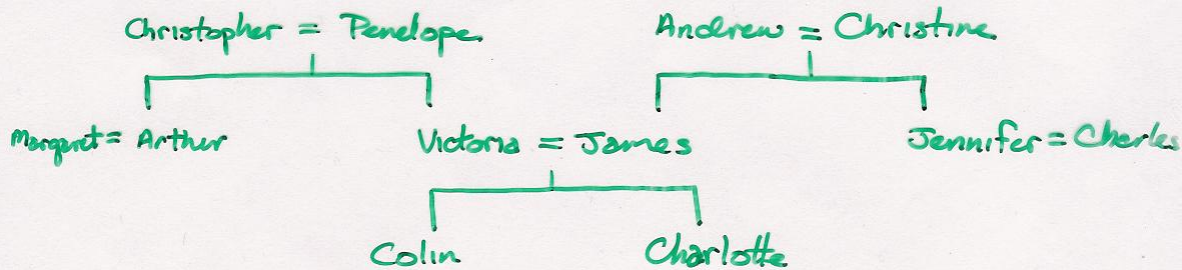 Christopher = Penelope Andrew = Christine
Margaret = Arthur Victoria = James Jennifer = Charles
Colin Charlotte